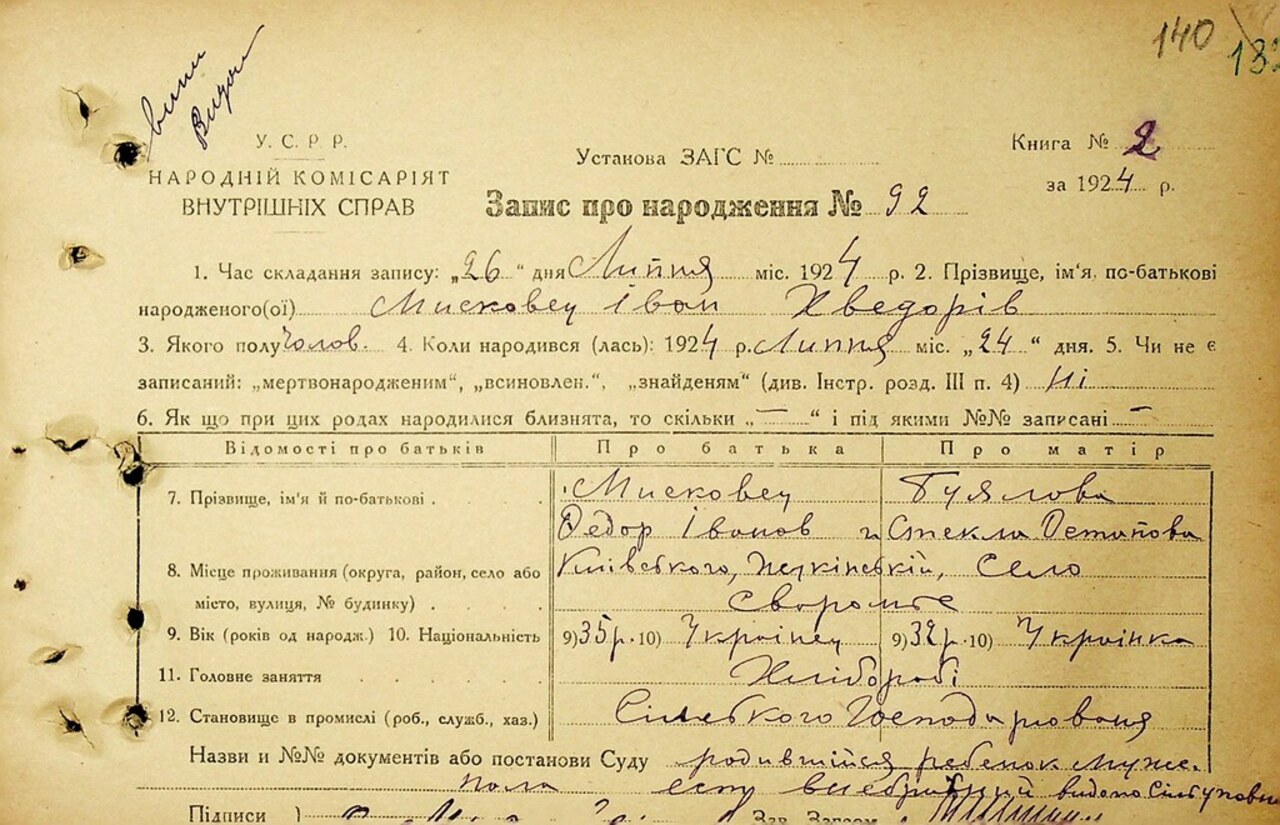 140
132
випи
Видан
У. С. Р. Р.
НАРОДНІЙ КОМІСАРІЯТ
ВНУТРІШНІХ СПРАВ
Установа ЗАГС №
Книга № 2
за 1924 р.
Запис про народження № 92
1. Час складання запису: „26“ дня Липня міс. 1924 р. 2. Прізвище, ім'я, по-батькові
народженого(ої) Мисковец Іван Хведорів
3. Якого полу Чолов. 4. Коли народився (лась): 1924 р. Липня міс. „24“ дня. 5. Чи не є
записаний: „мертвонародженим“, „всиновлен.“, „знайденям“ (див. Інстр. розд. III п. 4) Ні
6. Як що при цих родах народилися близнята, то скільки „—“ і під якими №№ записані —
Відомості про батьків Про батька Про матір
7. Прізвище, ім'я й по-батькові Мисковец Гуялова
Федор Іванов и Стекла Остапова
8. Місце проживання (округа, район, село або Київського, Село
місто, вулиця, № будинку) Сваромье
9. Вік (років од народж.) 10. Національність 9) 35 р. 10) Українец 9) 32 р. 10) Українка
11. Головне заняття Хлібороби
12. Становище в промислі (роб., служб., хаз.) Сільского Господарювання
Назви и №№ документів або постанови Суду родившійся ребенок муже.
пола есть видано
Підписи } Зав. Загсом